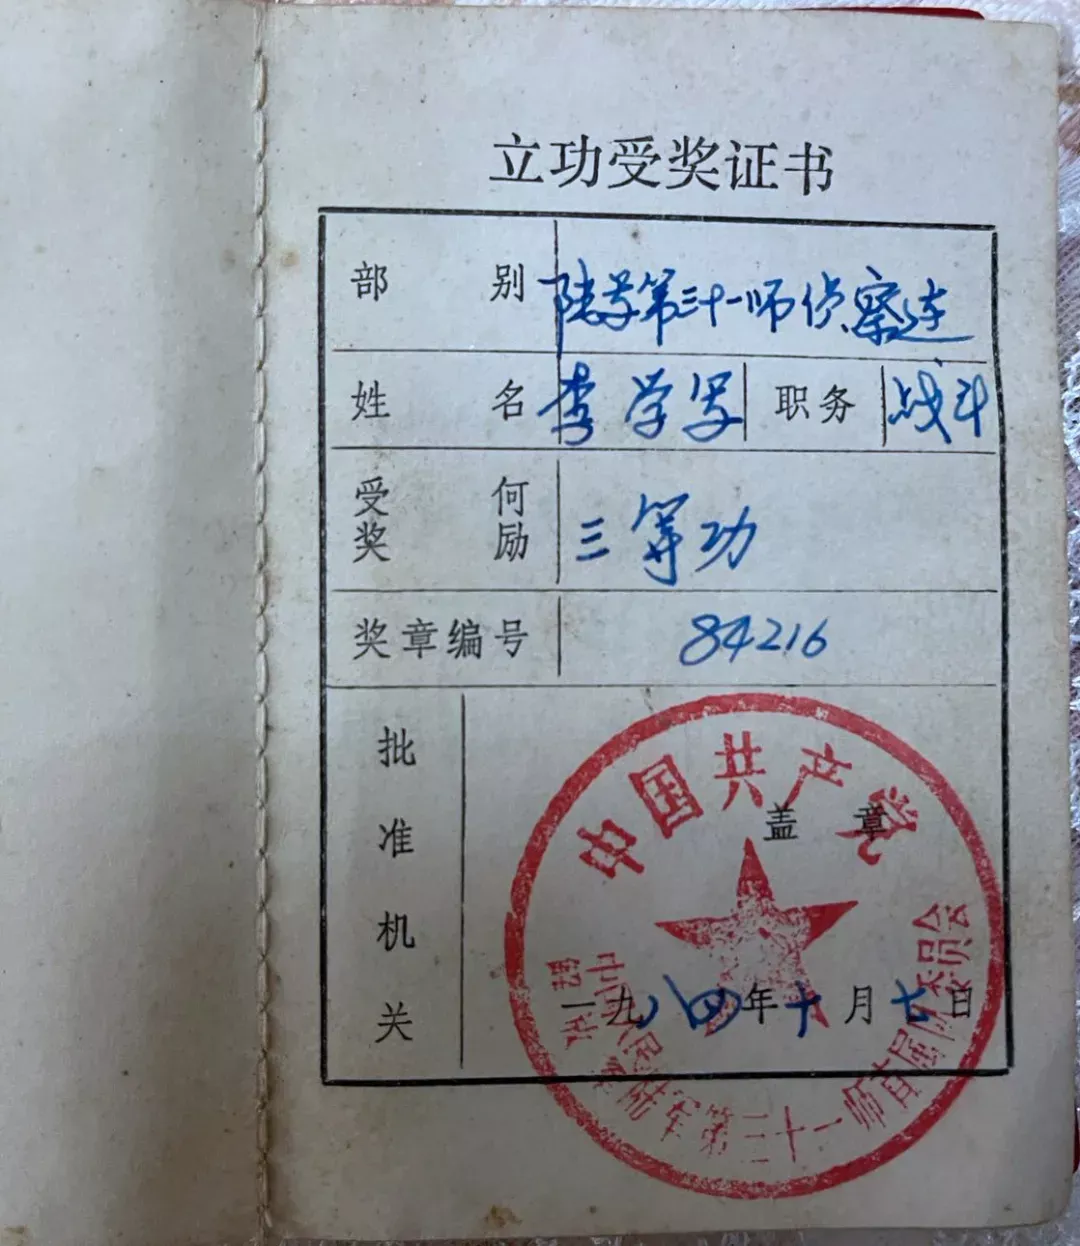 立功受奖证书
部别 陆军第三十一师侦察连
姓名 李学军 职务 战斗
受何奖励 三等功
奖章编号 84216
批准机关
盖章
一九八四年十月七日
中国共产党
中国人民解放军陆军第三十一师直属队委员会